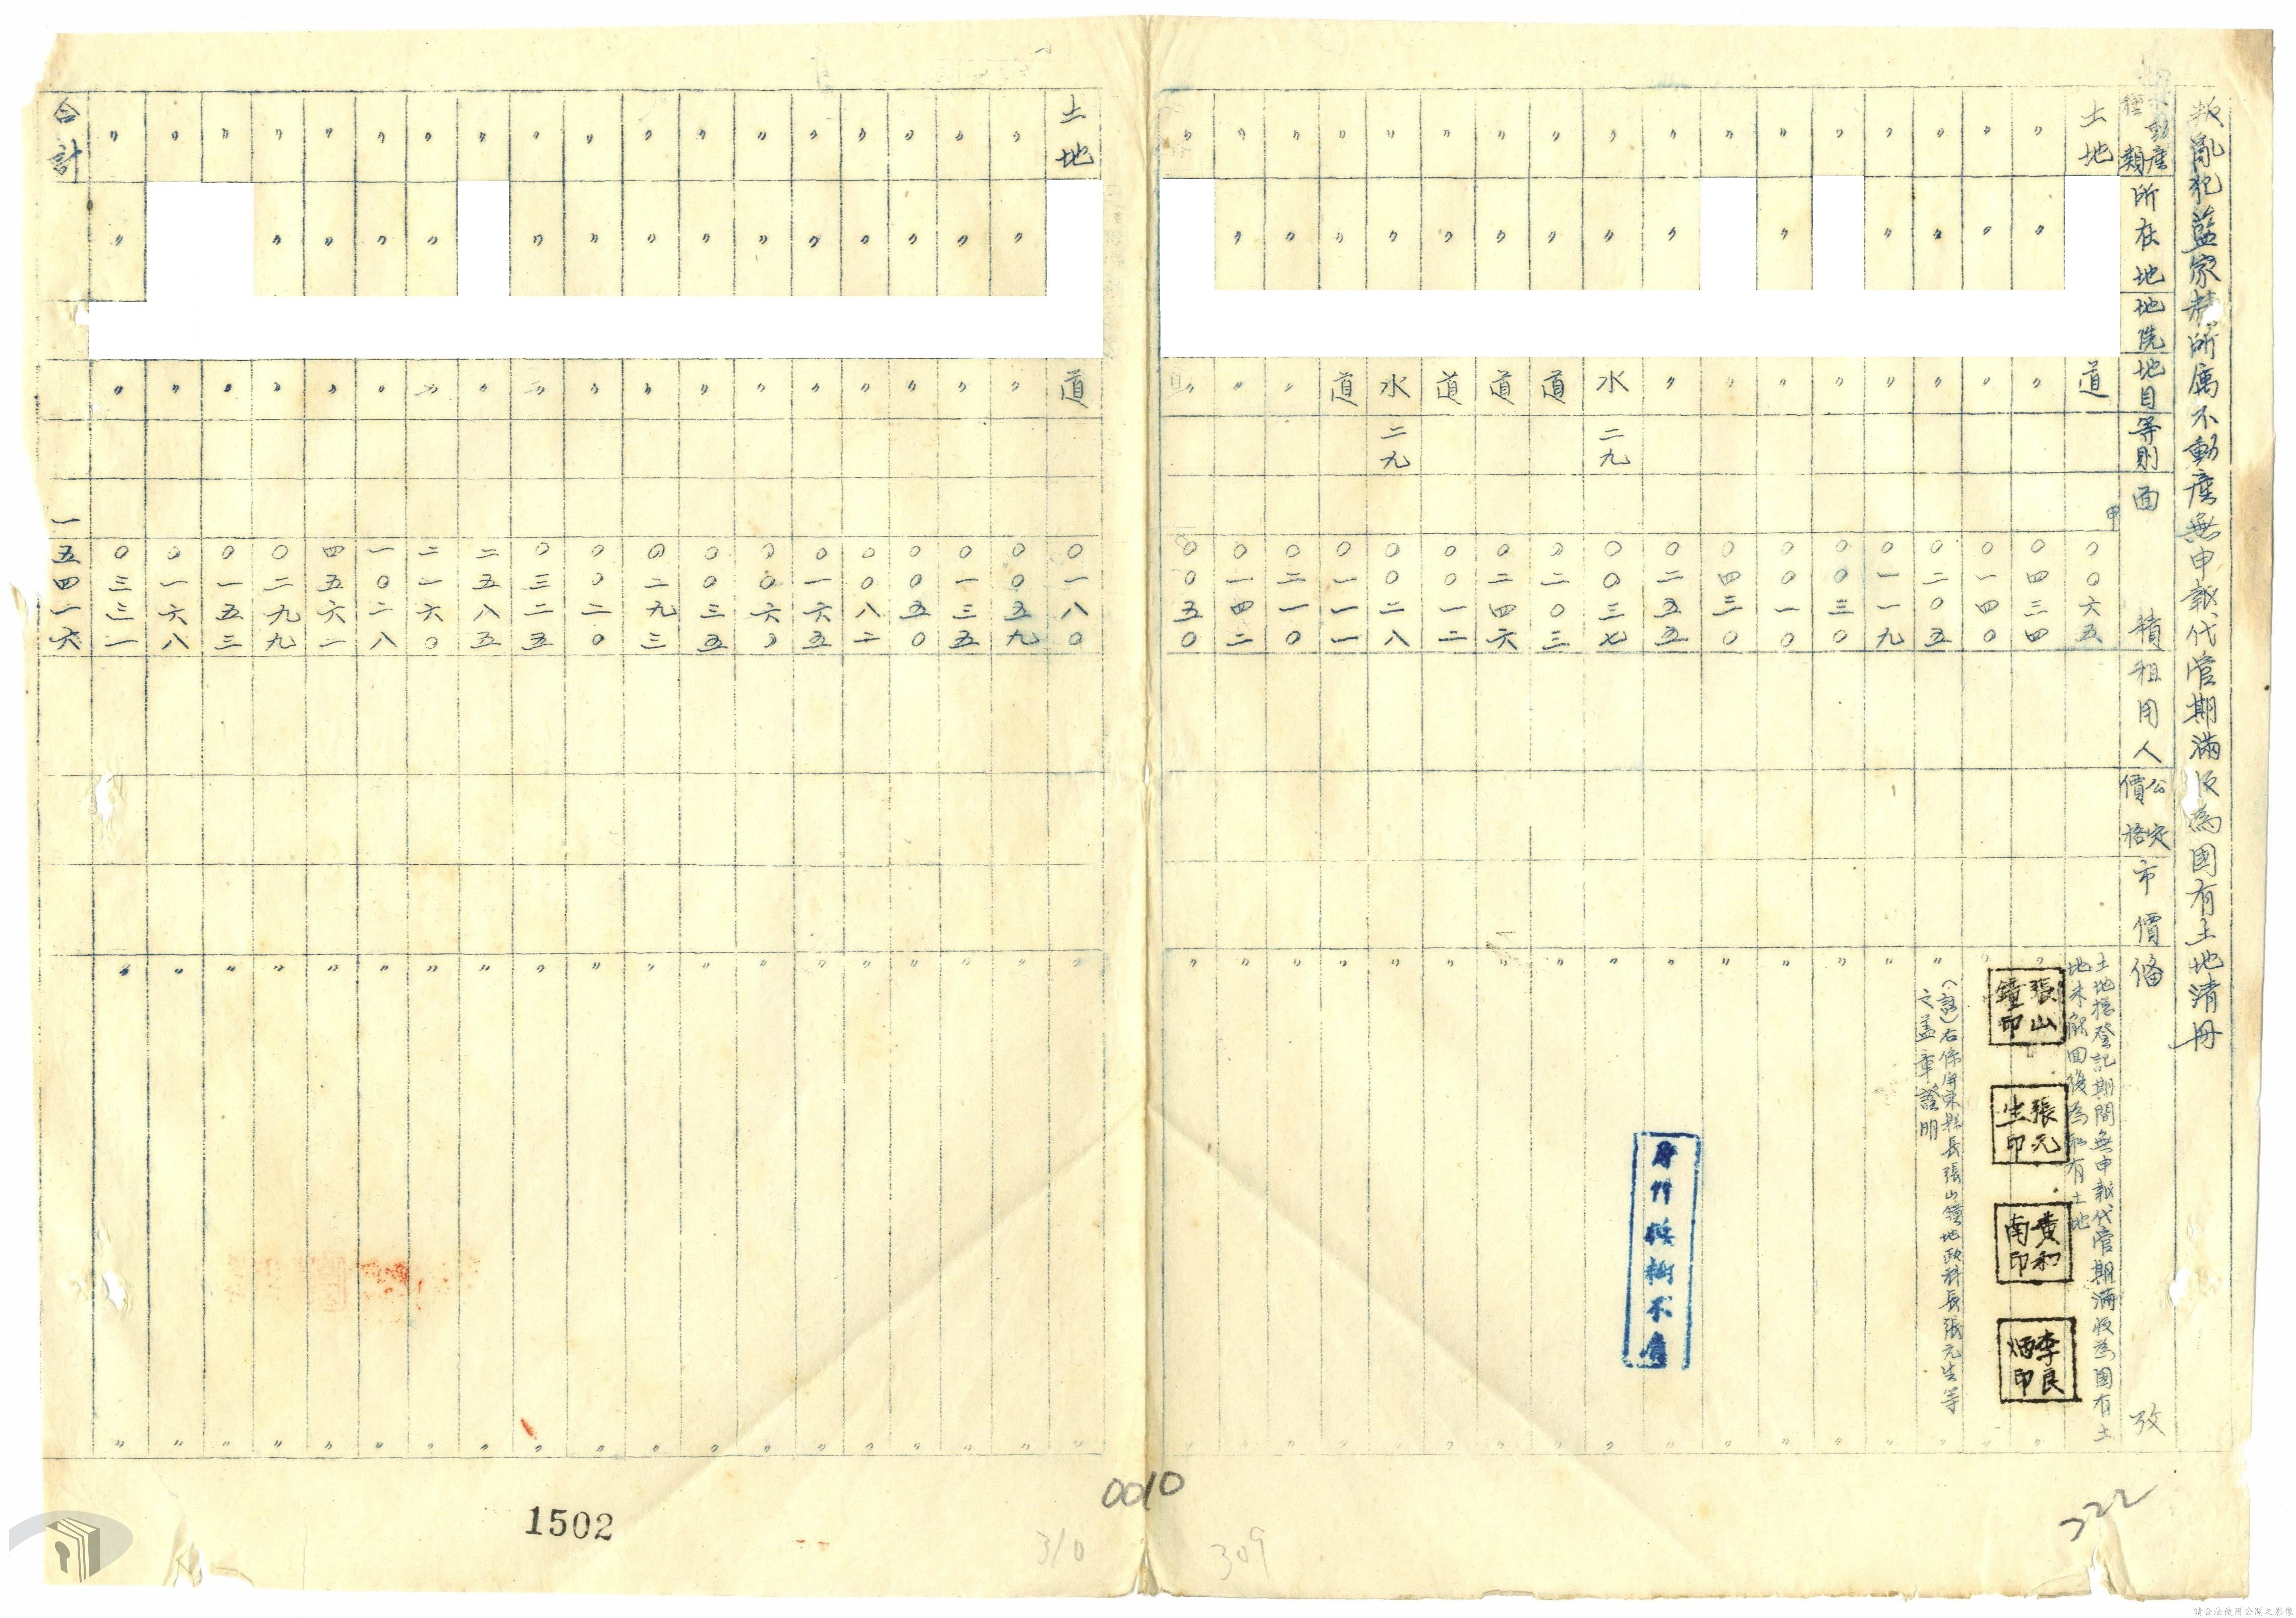 叛亂犯藍家精所屬不動產無申報代管期滿收為國有土地清冊
不動產種類 所在地 地號 地目 等則 面積 租用人 公定價格 市價 備攷
土地 道 甲 〇〇六五 土地總登記期間無申報代管期滿收為國有土
地未解回後為私有土地
〃 〃 〃 〇四三四 〃 〃
〃 〃 〃 〇一四〇 〃 〃
〃 〃 〃 〇二〇五 〃 〃
〃 〃 〃 〇一一九 〃 〃
〃 〃 〇〇三〇 〃 〃
〃 〃 〃 〇〇一〇 〃 〃
〃 〃 〇四三〇 〃 〃
〃 〃 〃 〇二五五 〃 〃
〃 〃 水 二九 〇〇三七 〃 〃
〃 〃 道 〇二〇三 〃 〃
〃 〃 道 〇二四六 〃 〃
〃 〃 道 〇〇一二 〃 〃
〃 〃 水 二九 〇〇二八 〃 〃
〃 〃 道 〇一一一 〃 〃
〃 〃 〃 〇二一〇 〃 〃
〃 〃 〃 〇一四二 〃 〃
〃 〃 〇〇五〇 〃 〃
張山鐘印
張元生印
黃和南印
李良炳印
(註)右係屏東縣長張山鐘地政科長張元生等
之蓋章證明
土地 道 〇一八〇 〃 〃
〃 〃 〃 〇〇五九 〃 〃
〃 〃 〃 〇一三五 〃 〃
〃 〃 〃 〇〇五〇 〃 〃
〃 〃 〃 〇〇八二 〃 〃
〃 〃 〃 〇一六五 〃 〃
〃 〃 〃 〇〇六〇 〃 〃
〃 〃 〃 〇〇三五 〃 〃
〃 〃 〃 〇二九三 〃 〃
〃 〃 〃 〇〇二〇 〃 〃
〃 〃 〃 〇三二五 〃 〃
〃 〃 二五八五 〃 〃
〃 〃 〃 二一六〇 〃 〃
〃 〃 〃 一〇二八 〃 〃
〃 〃 〃 四五六一 〃 〃
〃 〃 〃 〇二九九 〃 〃
〃 〃 〇一五三 〃 〃
〃 〃 〇一六八 〃 〃
〃 〃 〃 〇三三一 〃 〃
合計 一五四一六
0010
1502
310
309
322
請合法使用公開之影像